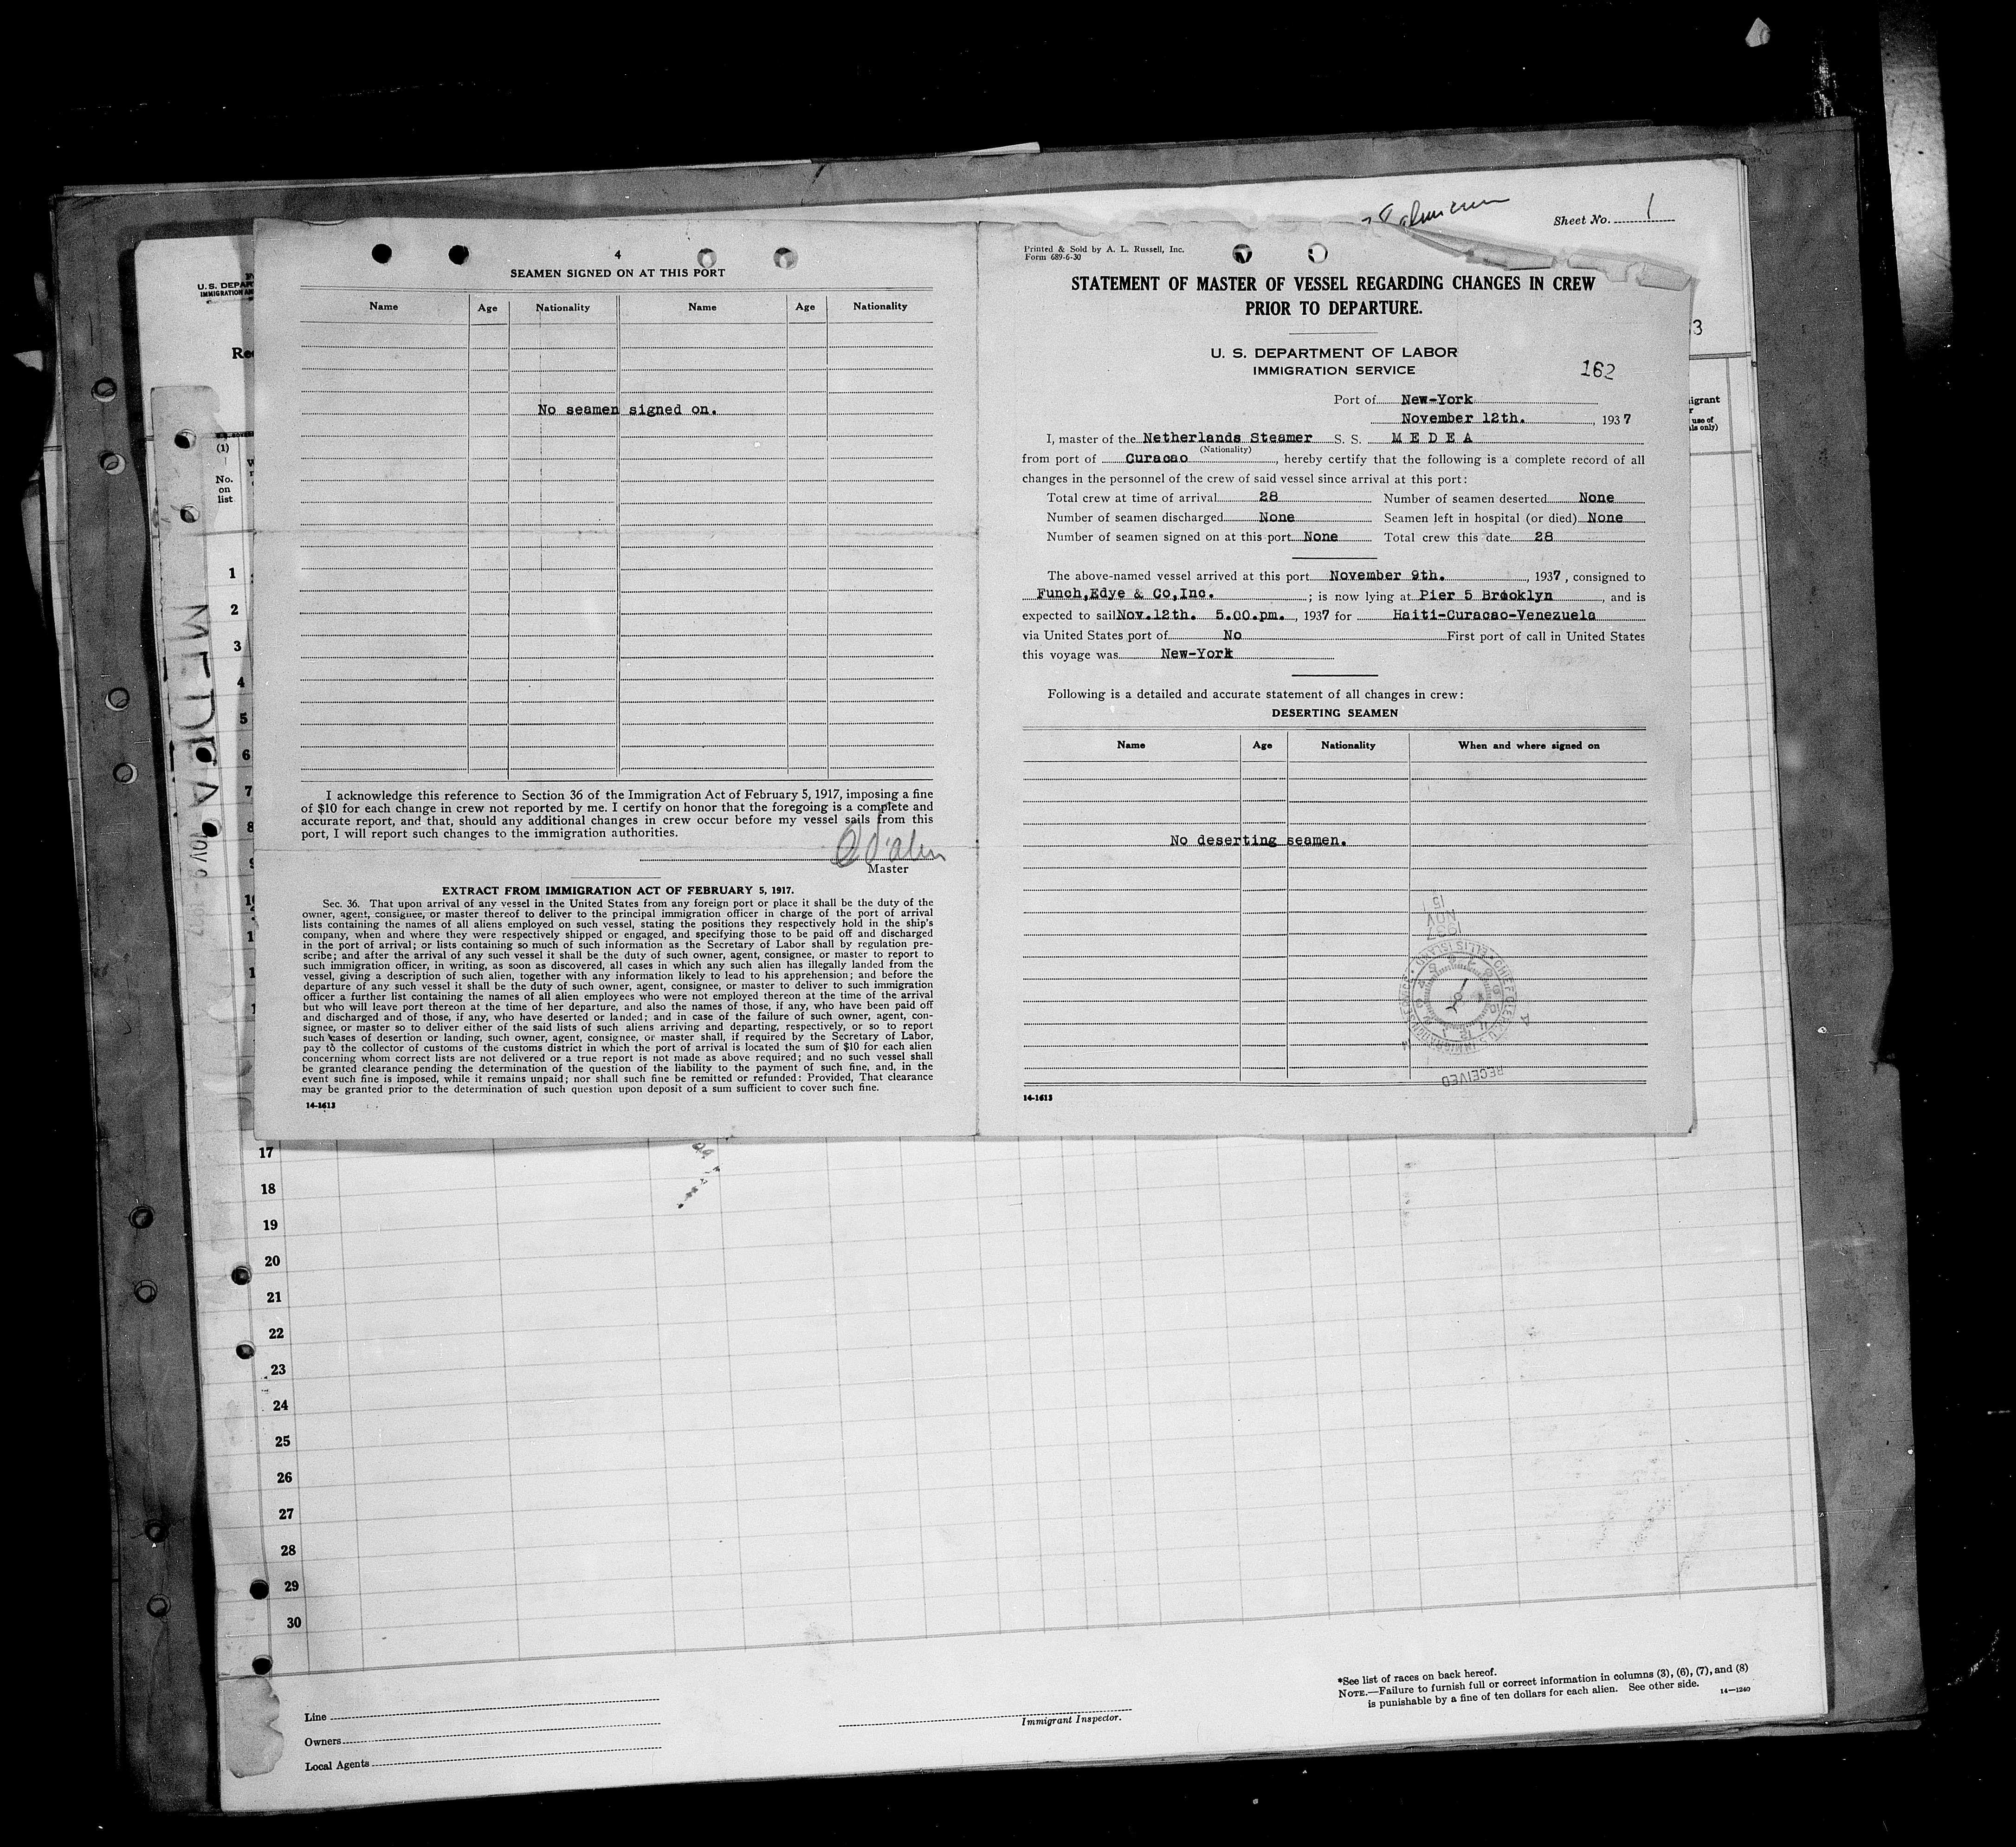 4
SEAMEN SIGNED ON AT THIS PORT
Name Age Nationality Name Age Nationality
No seamen signed on.
I acknowledge this reference to Section 36 of the Immigration Act of February 5, 1917, imposing a fine
of $10 for each change in crew not reported by me. I certify on honor that the foregoing is a complete and
accurate report, and that, should any additional changes in crew occur before my vessel sails from this
port, I will report such changes to the immigration authorities.
Master
EXTRACT FROM IMMIGRATION ACT OF FEBRUARY 5, 1917.
Sec. 36. That upon arrival of any vessel in the United States from any foreign port or place it shall be the duty of the
owner, agent, consignee, or master thereof to deliver to the principal immigration officer in charge of the port of arrival
lists containing the names of all aliens employed on such vessel, stating the positions they respectively hold in the ship's
company, when and where they were respectively shipped or engaged, and specifying those to be paid off and discharged
in the port of arrival; or lists containing so much of such information as the Secretary of Labor shall by regulation pre-
scribe; and after the arrival of any such vessel it shall be the duty of such owner, agent, consignee, or master to report to
such immigration officer, in writing, as soon as discovered, all cases in which any such alien has illegally landed from the
vessel, giving a description of such alien, together with any information likely to lead to his apprehension; and before the
departure of any such vessel it shall be the duty of such owner, agent, consignee, or master to deliver to such immigration
officer a further list containing the names of all alien employees who were not employed thereon at the time of the arrival
but who will leave port thereon at the time of her departure, and also the names of those, if any, who have been paid off
and discharged and of those, if any, who have deserted or landed; and in case of the failure of such owner, agent, con-
signee, or master so to deliver either of the said lists of such aliens arriving and departing, respectively, or so to report
such cases of desertion or landing, such owner, agent, consignee, or master shall, if required by the Secretary of Labor,
pay to the collector of customs of the customs district in which the port of arrival is located the sum of $10 for each alien
concerning whom correct lists are not delivered or a true report is not made as above required; and no such vessel shall
be granted clearance pending the determination of the question of the liability to the payment of such fine, and, in the
event such fine is imposed, while it remains unpaid; nor shall such fine be remitted or refunded: Provided, That clearance
may be granted prior to the determination of such question upon deposit of a sum sufficient to cover such fine.
14-1613
Sheet No. 1
Printed & Sold by A. L. Russell, Inc.
Form 689-6-30
STATEMENT OF MASTER OF VESSEL REGARDING CHANGES IN CREW
PRIOR TO DEPARTURE.
U. S. DEPARTMENT OF LABOR
IMMIGRATION SERVICE
162
Port of New-York
November 12th. , 1937
I, master of the Netherlands Steamer S. S. M E D E A
(Nationality)
from port of Curacao , hereby certify that the following is a complete record of all
changes in the personnel of the crew of said vessel since arrival at this port:
Total crew at time of arrival 28 Number of seamen deserted None
Number of seamen discharged None Seamen left in hospital (or died) None
Number of seamen signed on at this port None Total crew this date 28
The above-named vessel arrived at this port November 9th. , 1937, consigned to
Funch,Edye & Co,Inc. ; is now lying at Pier 5 Brooklyn , and is
expected to sail Nov.12th. 5.00.pm. , 1937 for Haiti-Curacao-Venezuela
via United States port of No First port of call in United States
this voyage was New-York
Following is a detailed and accurate statement of all changes in crew:
DESERTING SEAMEN
Name Age Nationality When and where signed on
No deserting seamen.
1937
NOV 15
RECEIVED
14-1613
(1)
No.
on
list
MEDEA
1
2
3
4
5
6
7
8
9
17
18
19
20
21
22
23
24
25
26
27
28
29
30
Line
Owners
Local Agents
Immigrant Inspector.
*See list of races on back hereof.
NOTE.—Failure to furnish full or correct information in columns (3), (6), (7), and (8)
is punishable by a fine of ten dollars for each alien. See other side.
14—1240